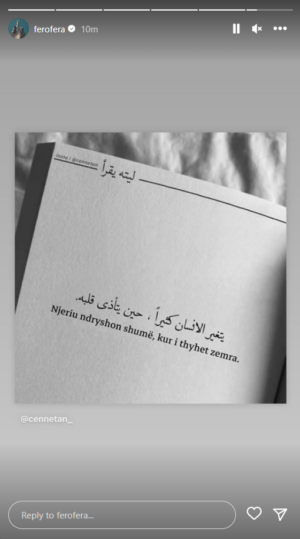 ferofera 10m
ليته يقرأ
يتغير الانسان كثيراً ، حين يتأذى قلبه.
Njeriu ndryshon shumë, kur i thyhet zemra.
@cennetan_
Reply to ferofera...